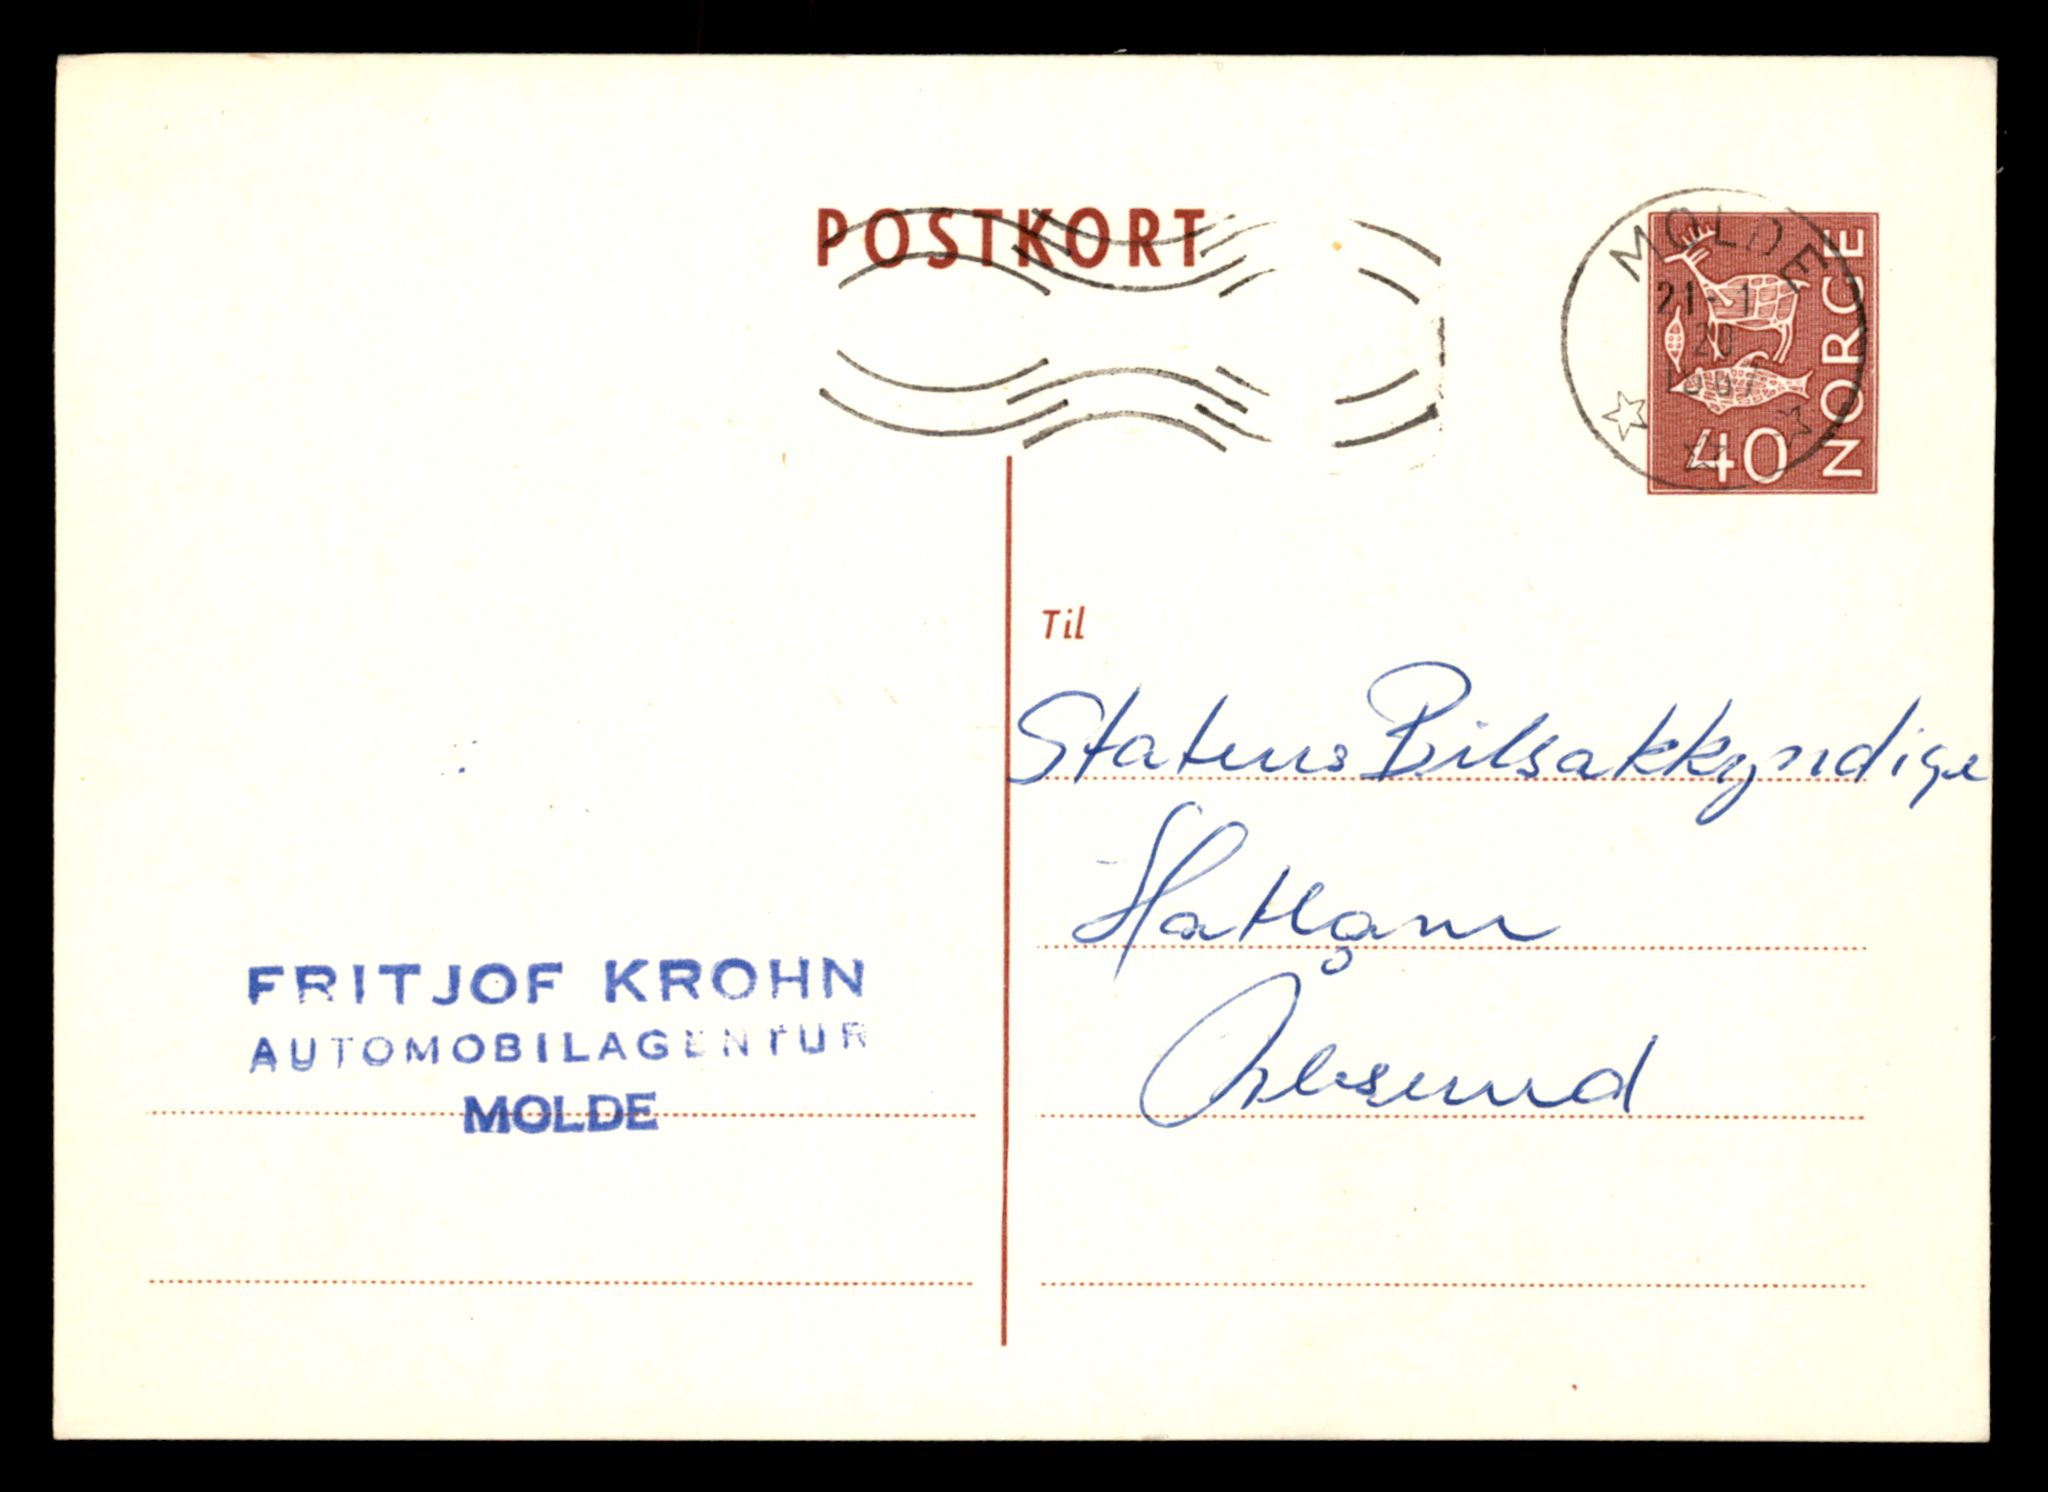 POSTKORT
MOLDE
21-1
20
1967
NORGE
40
Til
Statens Bilsakkyndige
Hatlane
Ålesund
FRITJOF KROHN
AUTOMOBILAGENTUR
MOLDE